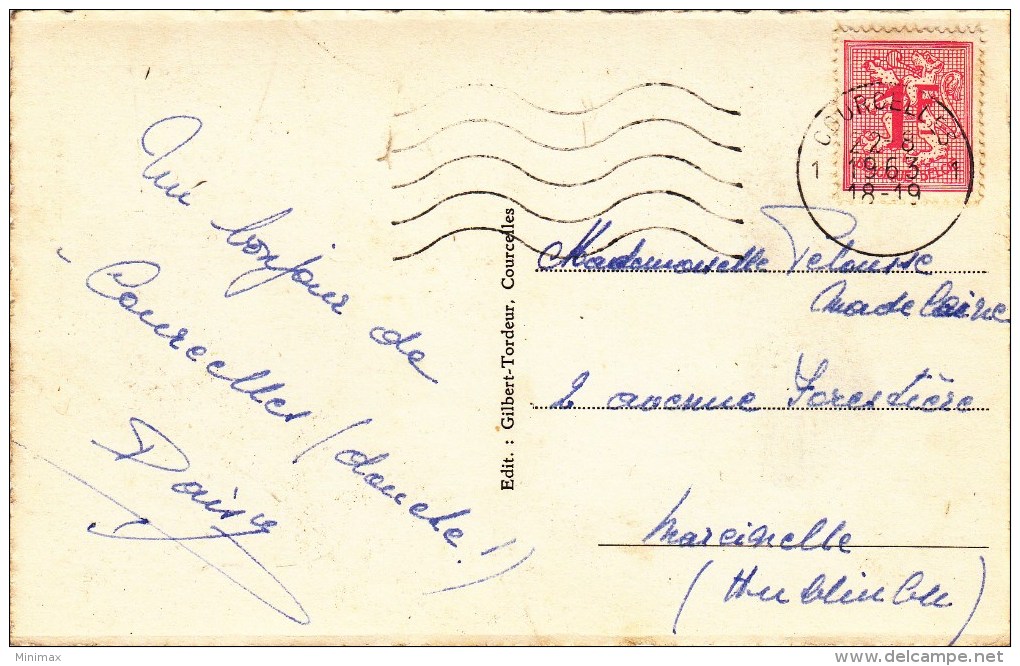 Un bonjour de
Courcelles (douche!)
Daisy
Edit. : Gilbert-Tordeur, Courcelles
COURCELLES
1 22-8 1
1963
18-19
1F
BELGIE
Mademoiselle Pelousse
Madeleine
2 avenue Forestière
Marcinelle
(Hublinbu)
Minimax
delcampe.net